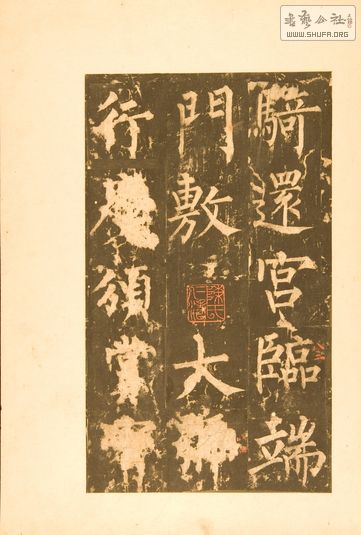 书艺公社
WWW.SHUFA.ORG
騎還宮臨端
門敷大
行頒賞